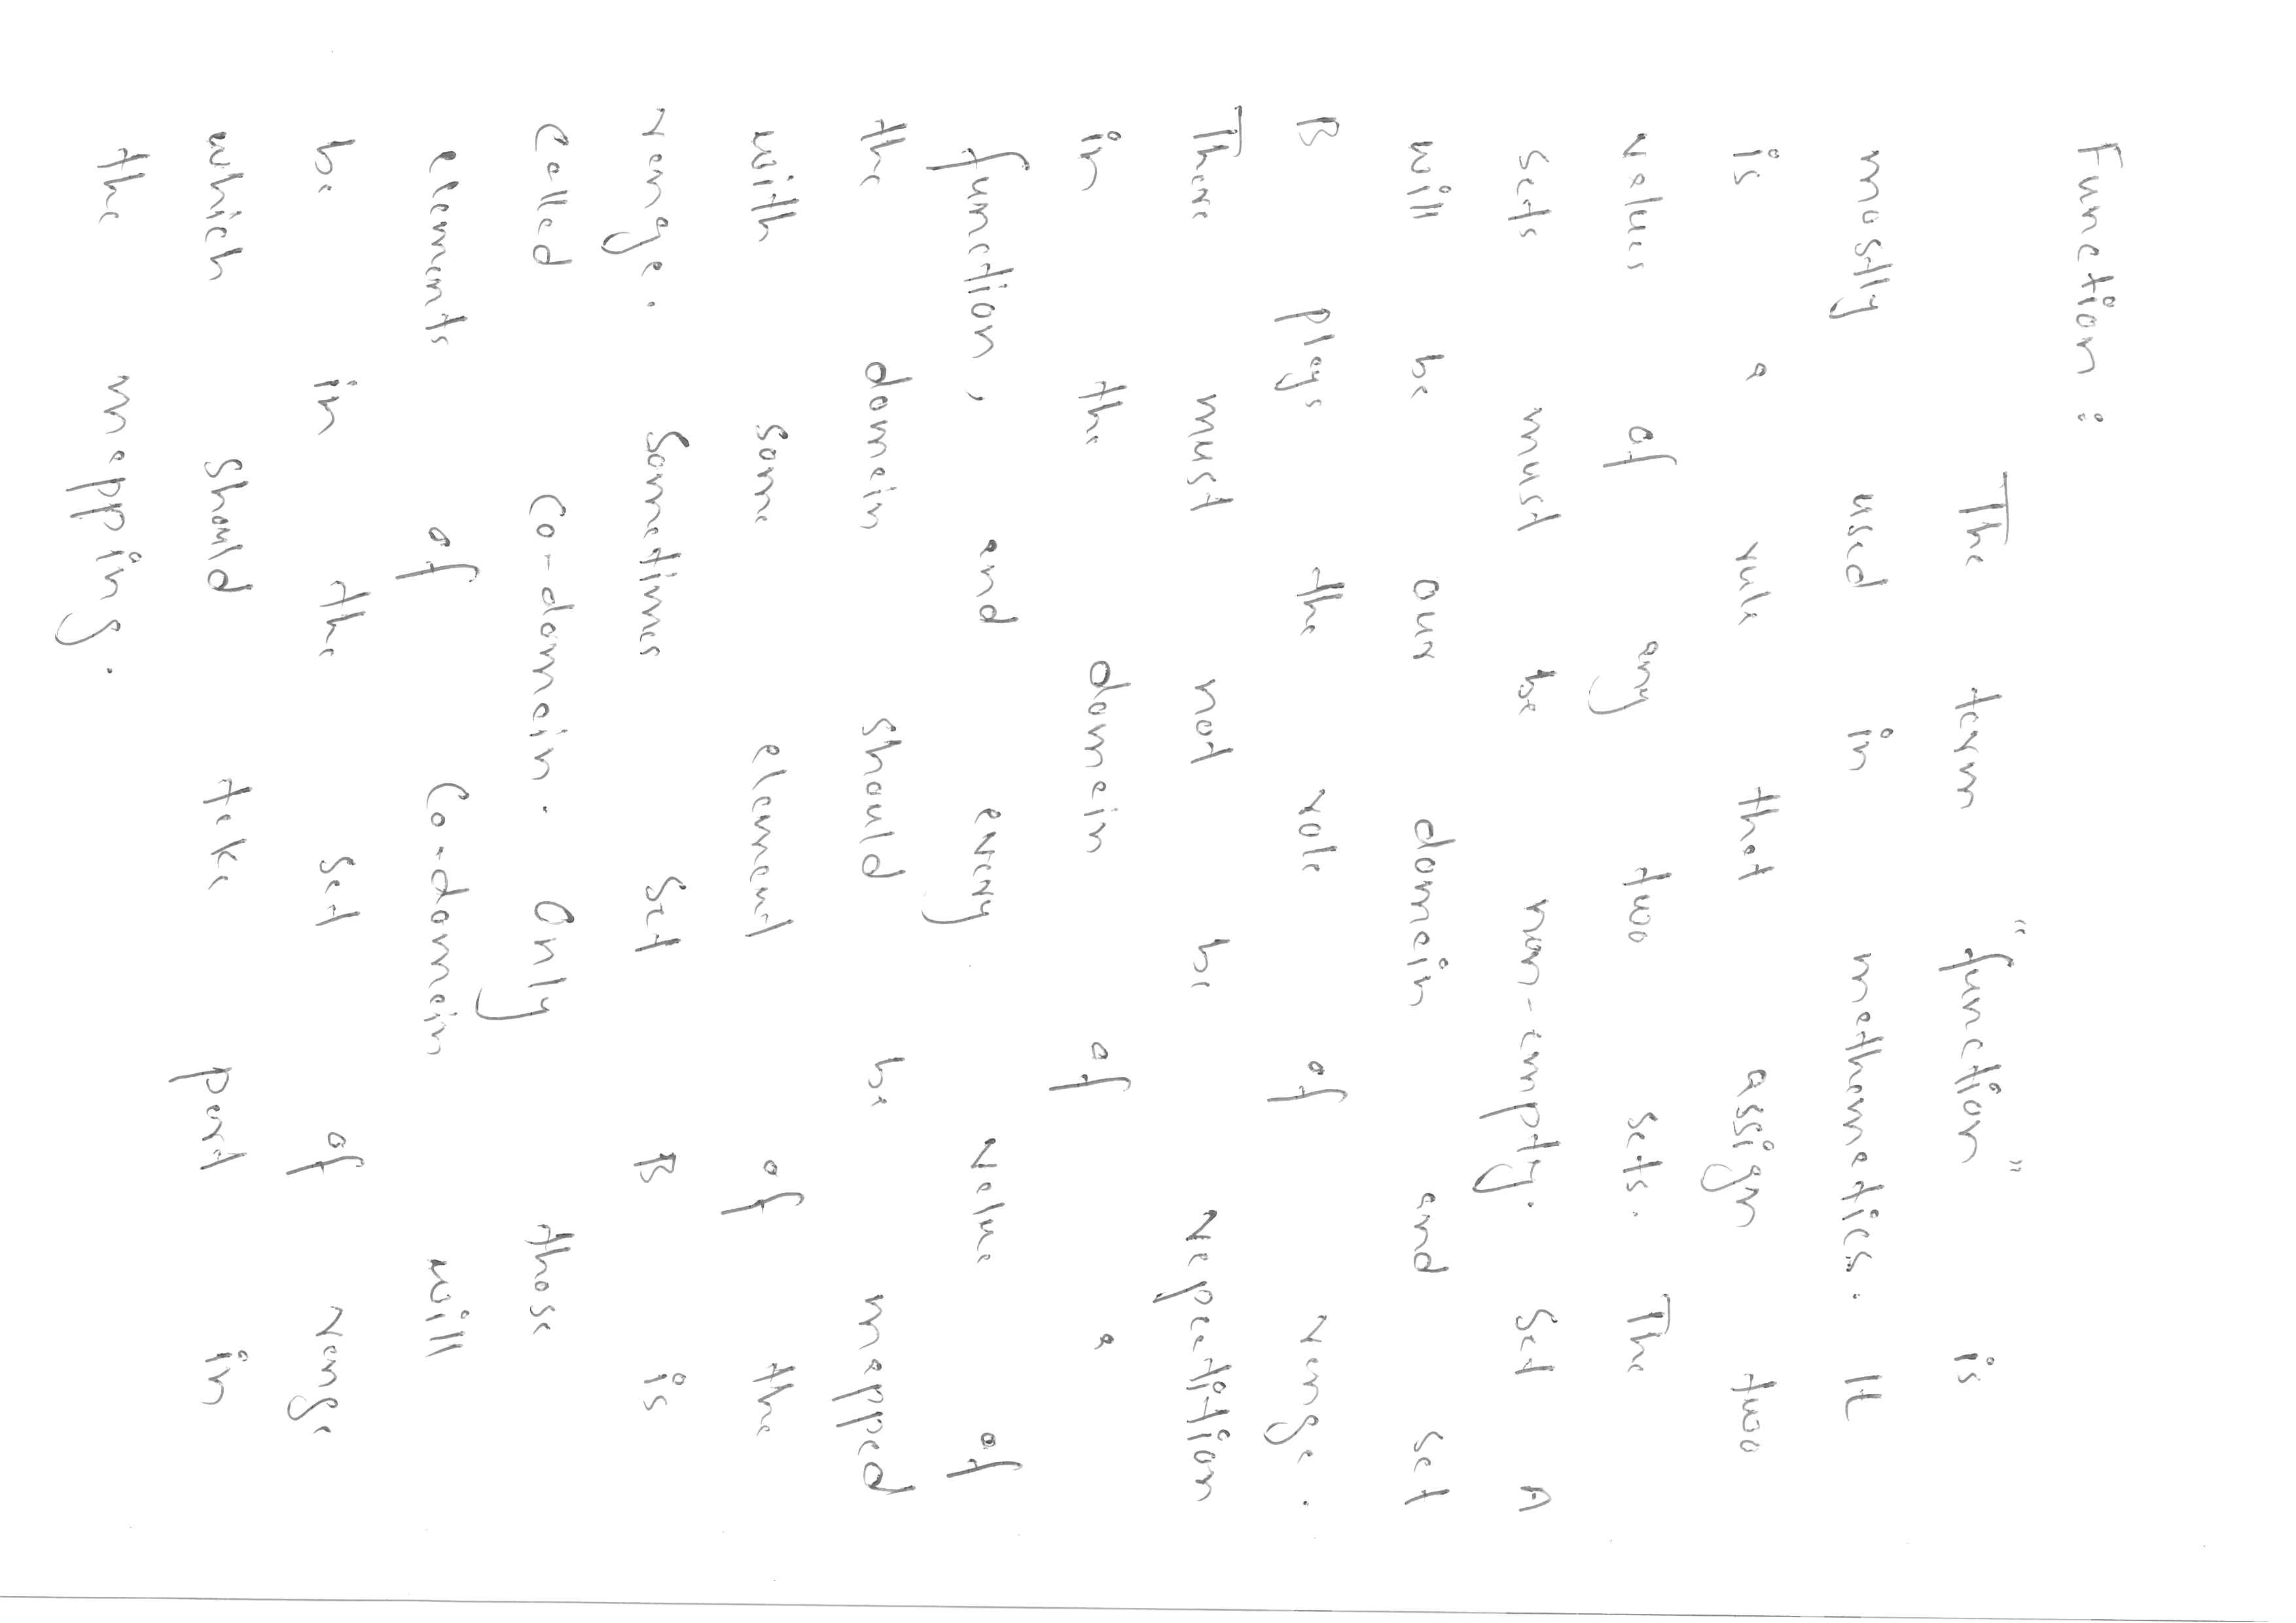 Function :
The term "function" is
mostly used in mathematics. It
is a rule that assign two
values of any two sets. The
sets must be non-empty. Set A
will be our domain and set
B plays the role of range.
There must not be repeatition
in the domain of a
function, and every value of
the domain should be mapped
with some element of the
range. Sometimes Set B is
Called Co-domain. Only those
elements of Co-domain will
be in the set of range
which should take part in
the mapping.